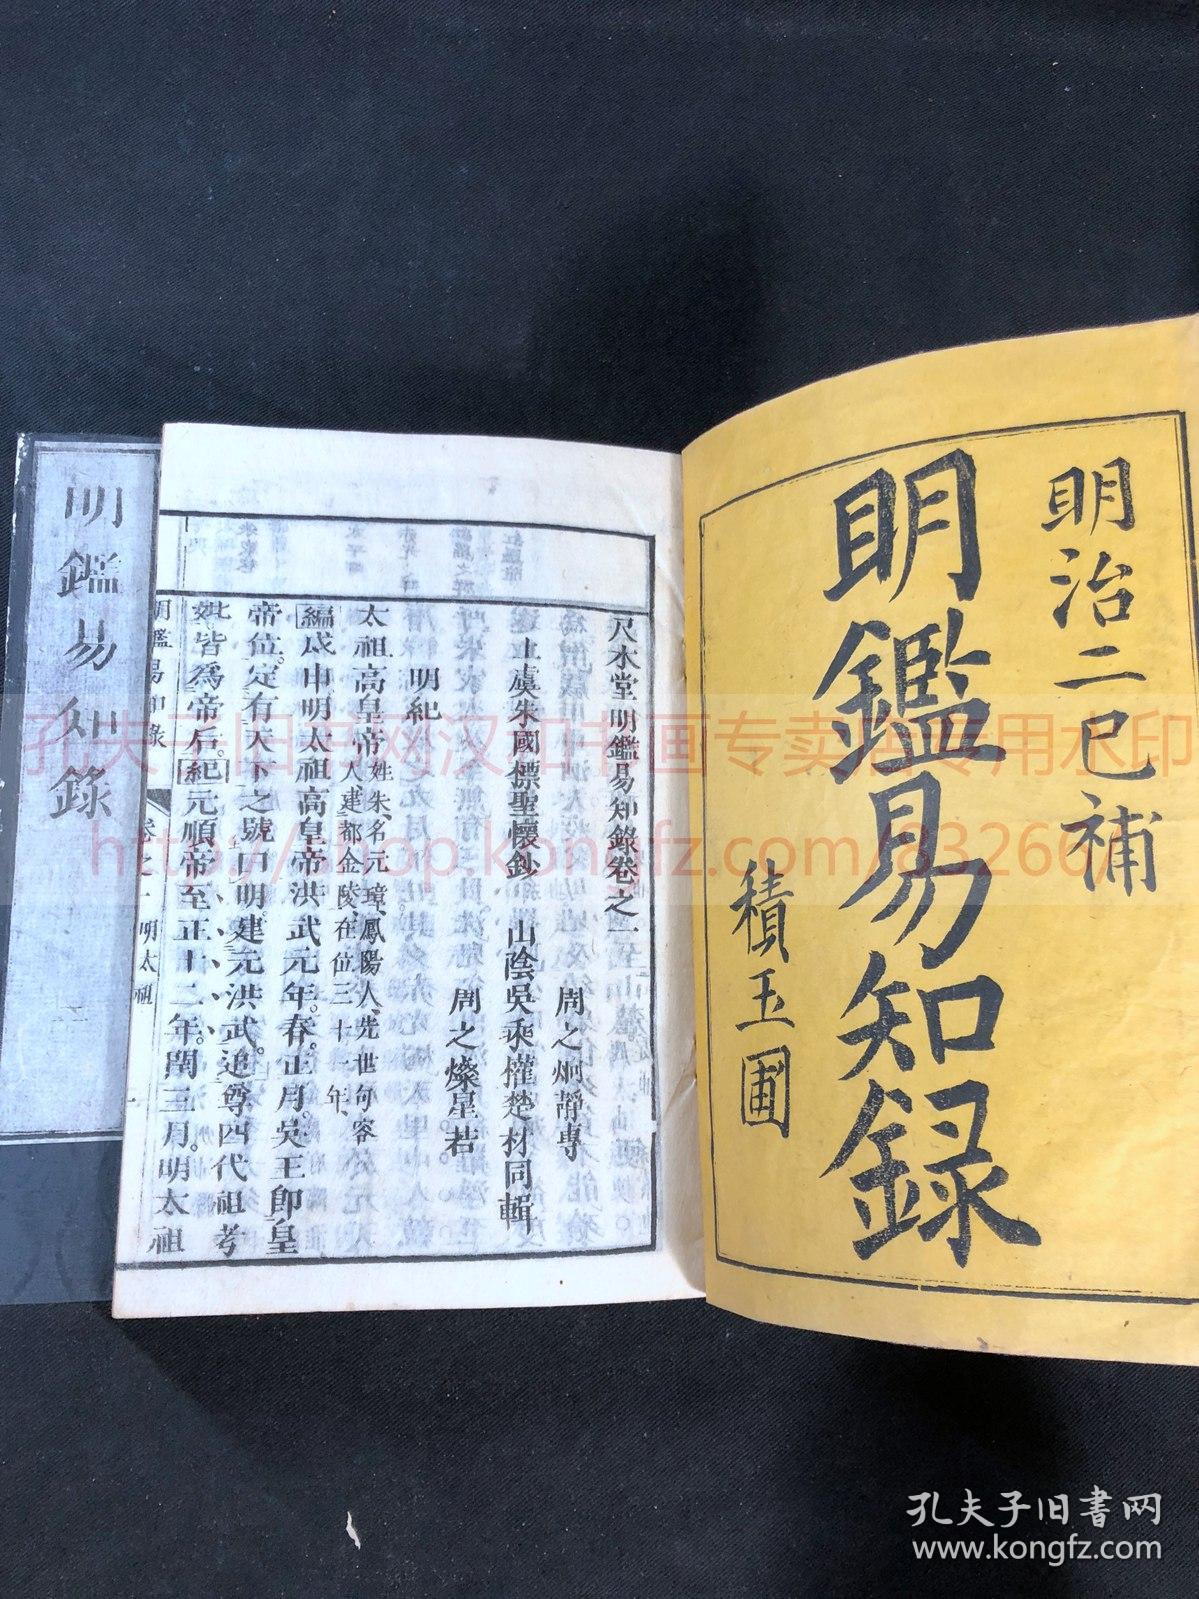 明治二巳補
明鑑易知録
積玉圃
尺木堂明鑑易知錄卷之一
周之炯靜專
上虞朱國標聖懷鈔 山陰吳乘權楚材同輯
周之燦星若
明紀
太祖高皇帝姓朱、名元璋、鳳陽人、先世句容
人、建都金陵、在位三十一年、
編戊申明太祖高皇帝洪武元年。春。正月。吳王即皇
帝位。定有天下之號曰明。建元洪武。追尊四代祖考
妣皆爲帝后。紀元順帝至正十二年。閏三月。明太祖
明鑑易知錄 卷之一 明太祖 一
明鑑易知錄 一
孔夫子旧书网汉和书画专卖店专用水印
http://shop.kongfz.com/83266/
孔夫子旧书网
www.kongfz.com